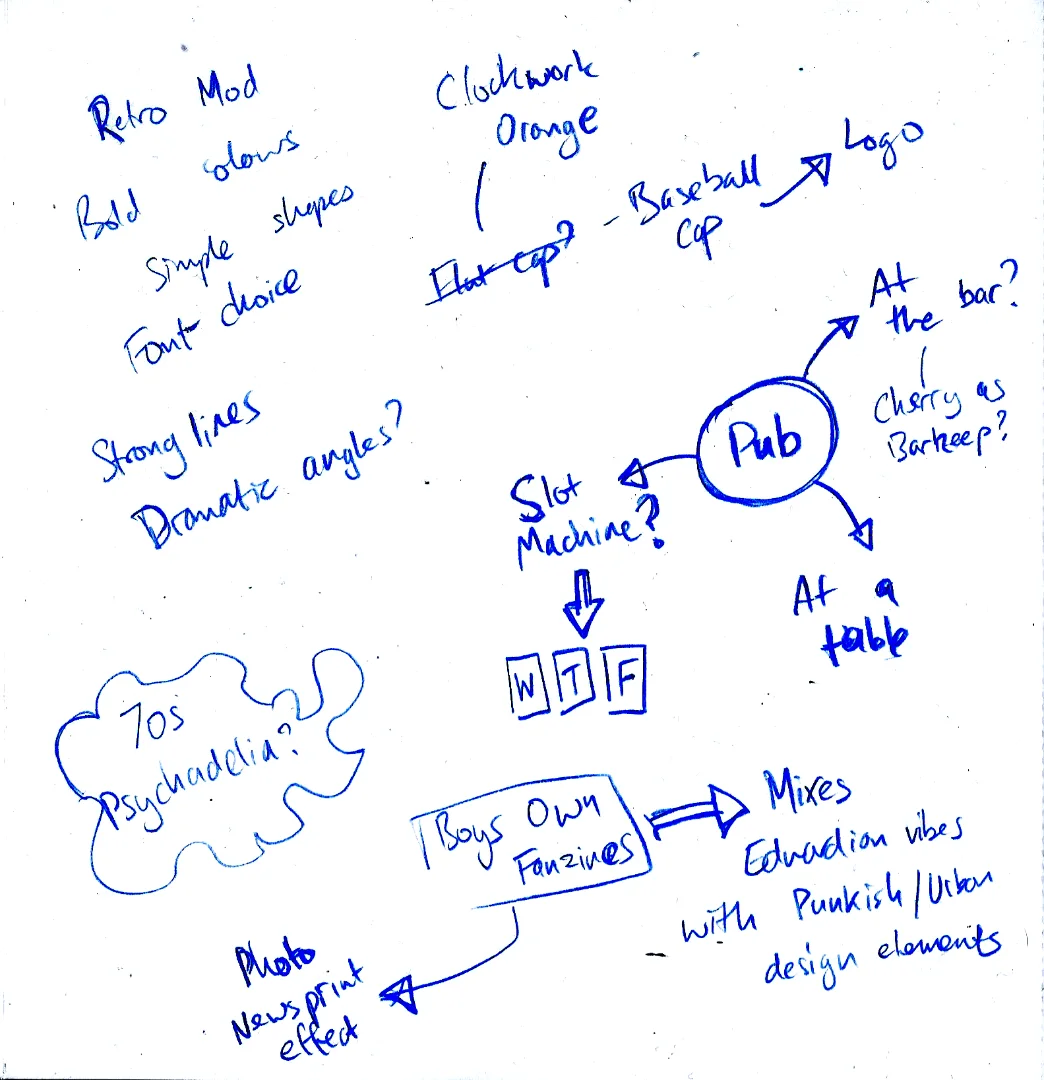 Retro Mod
Bold colours
simple shapes
Font choice
Strong lines
Dramatic angles?
Clockwork
Orange
Flat cap?
- Baseball
cap
Logo
Pub
At
the bar?
Cherry as
Barkeep?
At a
table
Slot
Machine?
W T F
70s
Psychadelia?
Boys Own
Fanzines
Mixes
Edwardian vibes
with Punkish/Urban
design elements
Photo
Newsprint
effect